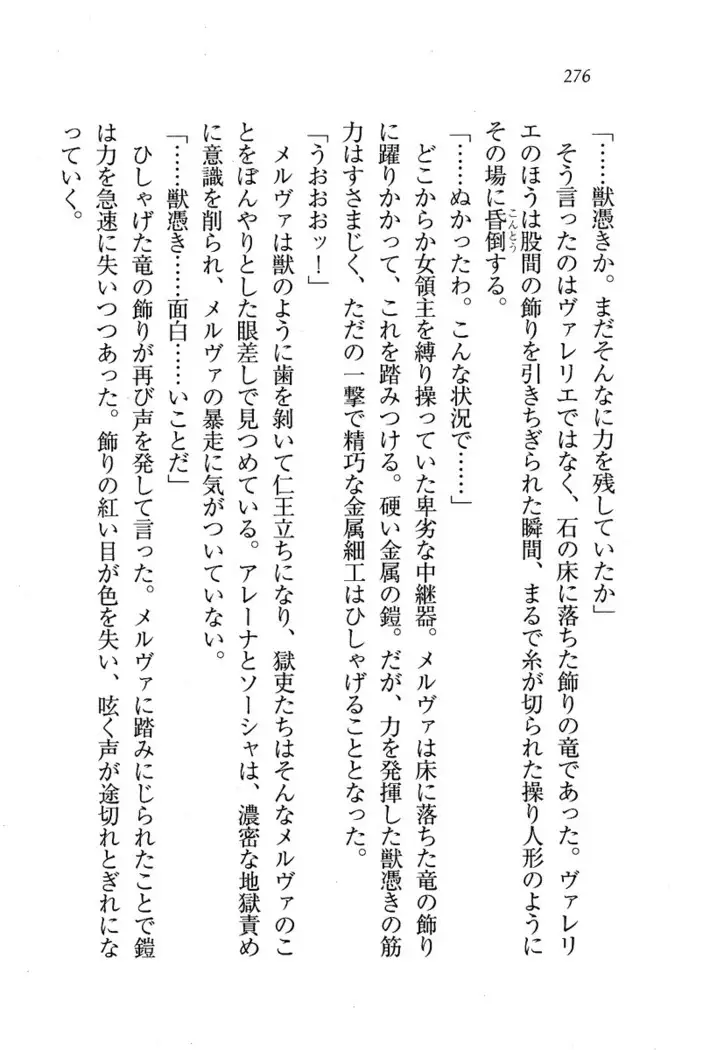 276
「……獣憑きか。まだそんなに力を残していたか」
そう言ったのはヴァレリエではなく、石の床に落ちた飾りの竜であった。ヴァレリ
エのほうは股間の飾りを引きちぎられた瞬間、まるで糸が切られた操り人形のように
その場に昏倒する。
こんとう
「……ぬかったわ。こんな状況で……」
どこからか女領主を縛り操っていた卑劣な中継器。メルヴァは床に落ちた竜の飾り
に躍りかかって、これを踏みつける。硬い金属の鎧。だが、力を発揮した獣憑きの筋
力はすさまじく、ただの一撃で精巧な金属細工はひしゃげることとなった。
「うおおおッ！」
メルヴァは獣のように歯を剥いて仁王立ちになり、獄吏たちはそんなメルヴァのこ
とをぼんやりとした眼差しで見つめている。アレーナとソーシャは、濃密な地獄責め
に意識を削られ、メルヴァの暴走に気がついていない。
「……獣憑き……面白……いことだ」
ひしゃげた竜の飾りが再び声を発して言った。メルヴァに踏みにじられたことで鎧
は力を急速に失いつつあった。飾りの紅い目が色を失い、呟く声が途切れとぎれにな
っていく。